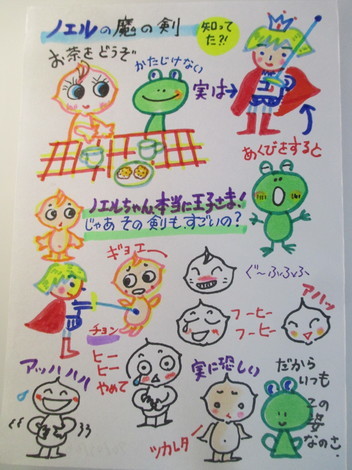 ノエルの魔の剣
知ってた?!
お茶をどうぞ
かたじけない
実は
あくびをすると
ノエルちゃん、本当に王子さま!
じゃあその剣も、すごいの?
ギョエー
ぐ〜ふふふ
チョン
フーヒー
フーヒー
アハッ
アッハハハ
ヒー
ヒー
やめて
実に恐しい
ツカレタ
だから
いつも
この
姿
なのさ。